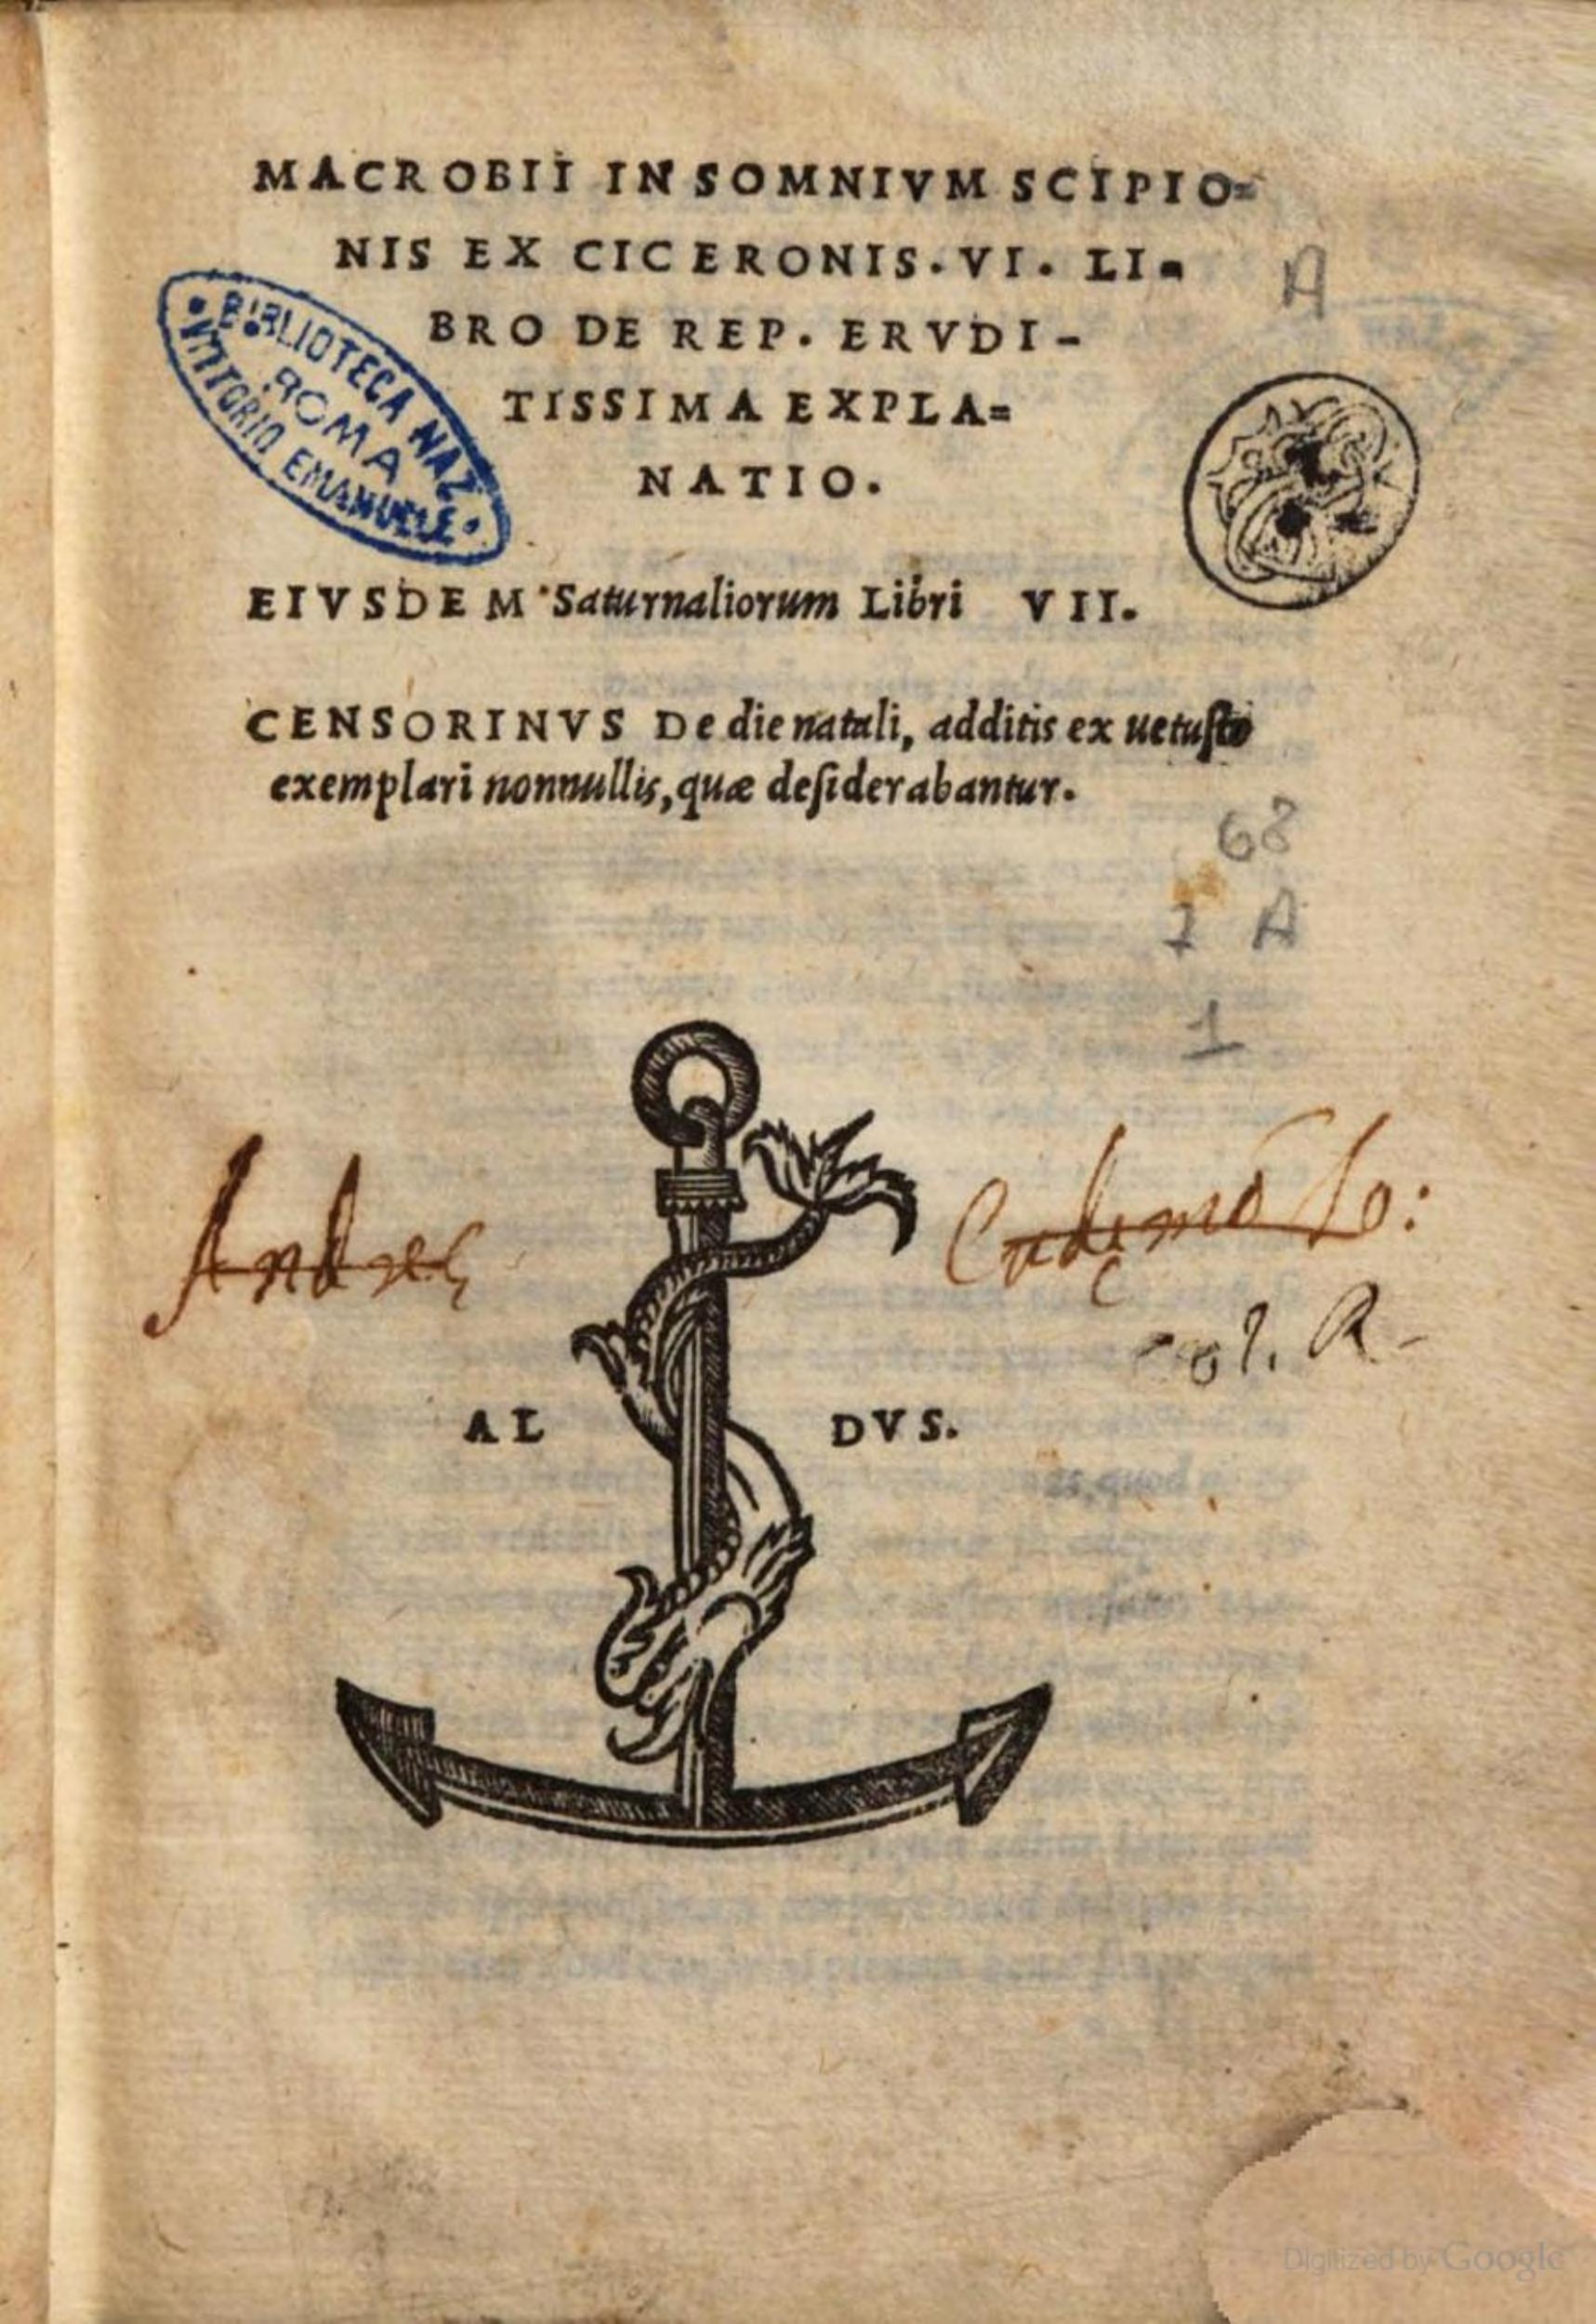 MACROBII IN SOMNIVM SCIPIO=
NIS EX CICERONIS. VI. LI=
BRO DE REP. ERVDI-
TISSIMA EXPLA=
NATIO.
A
BIBLIOTECA NAZ.
ROMA
VITTORIO EMANUELE
EIVSDEM Saturnaliorum Libri VII.
CENSORINVS De die natali, additis ex uetuſto
exemplari nonnullis, quæ deſiderabantur.
68
7 A
1
AL DVS.
Digitized by Google